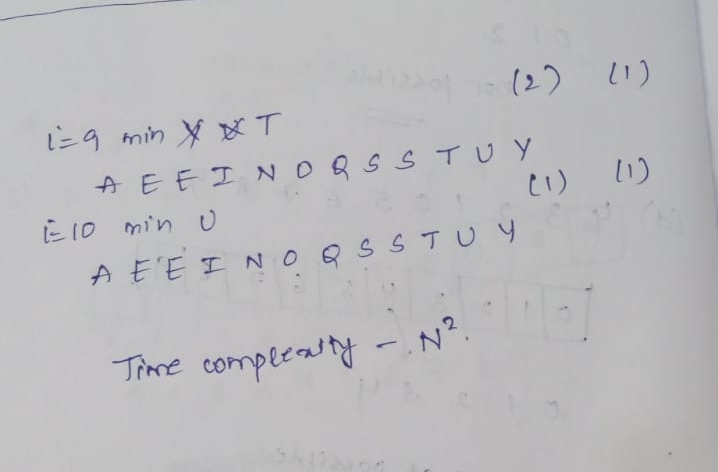 (2) (1)
i=9 min Y U T
A E E I N O Q S S T U Y
(1) (1)
i=10 min U
A E E I N O Q S S T U Y
Time complexity - N².